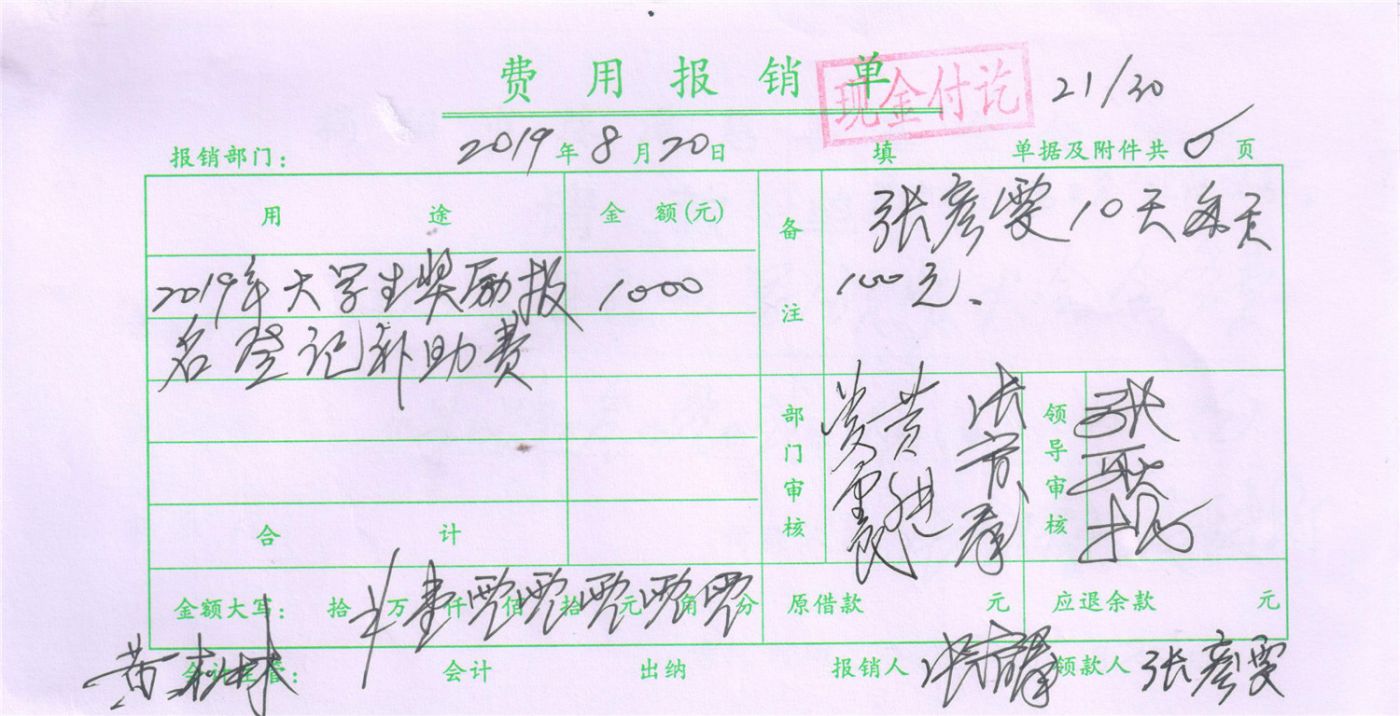 费用报销单
现金付讫
21/30
报销部门： 2019年8月20日 填 单据及附件共 页
用途 金额(元) 备注 张彦雯10天每天
100元、
2019年大学生奖励报 1000
名登记补助费
部门审核 领导审核
合计
金额大写： 拾 万壹仟零佰零拾零元零角零分 原借款 元 应退余款 元
会计主管： 会计 出纳 报销人 领款人 张彦雯